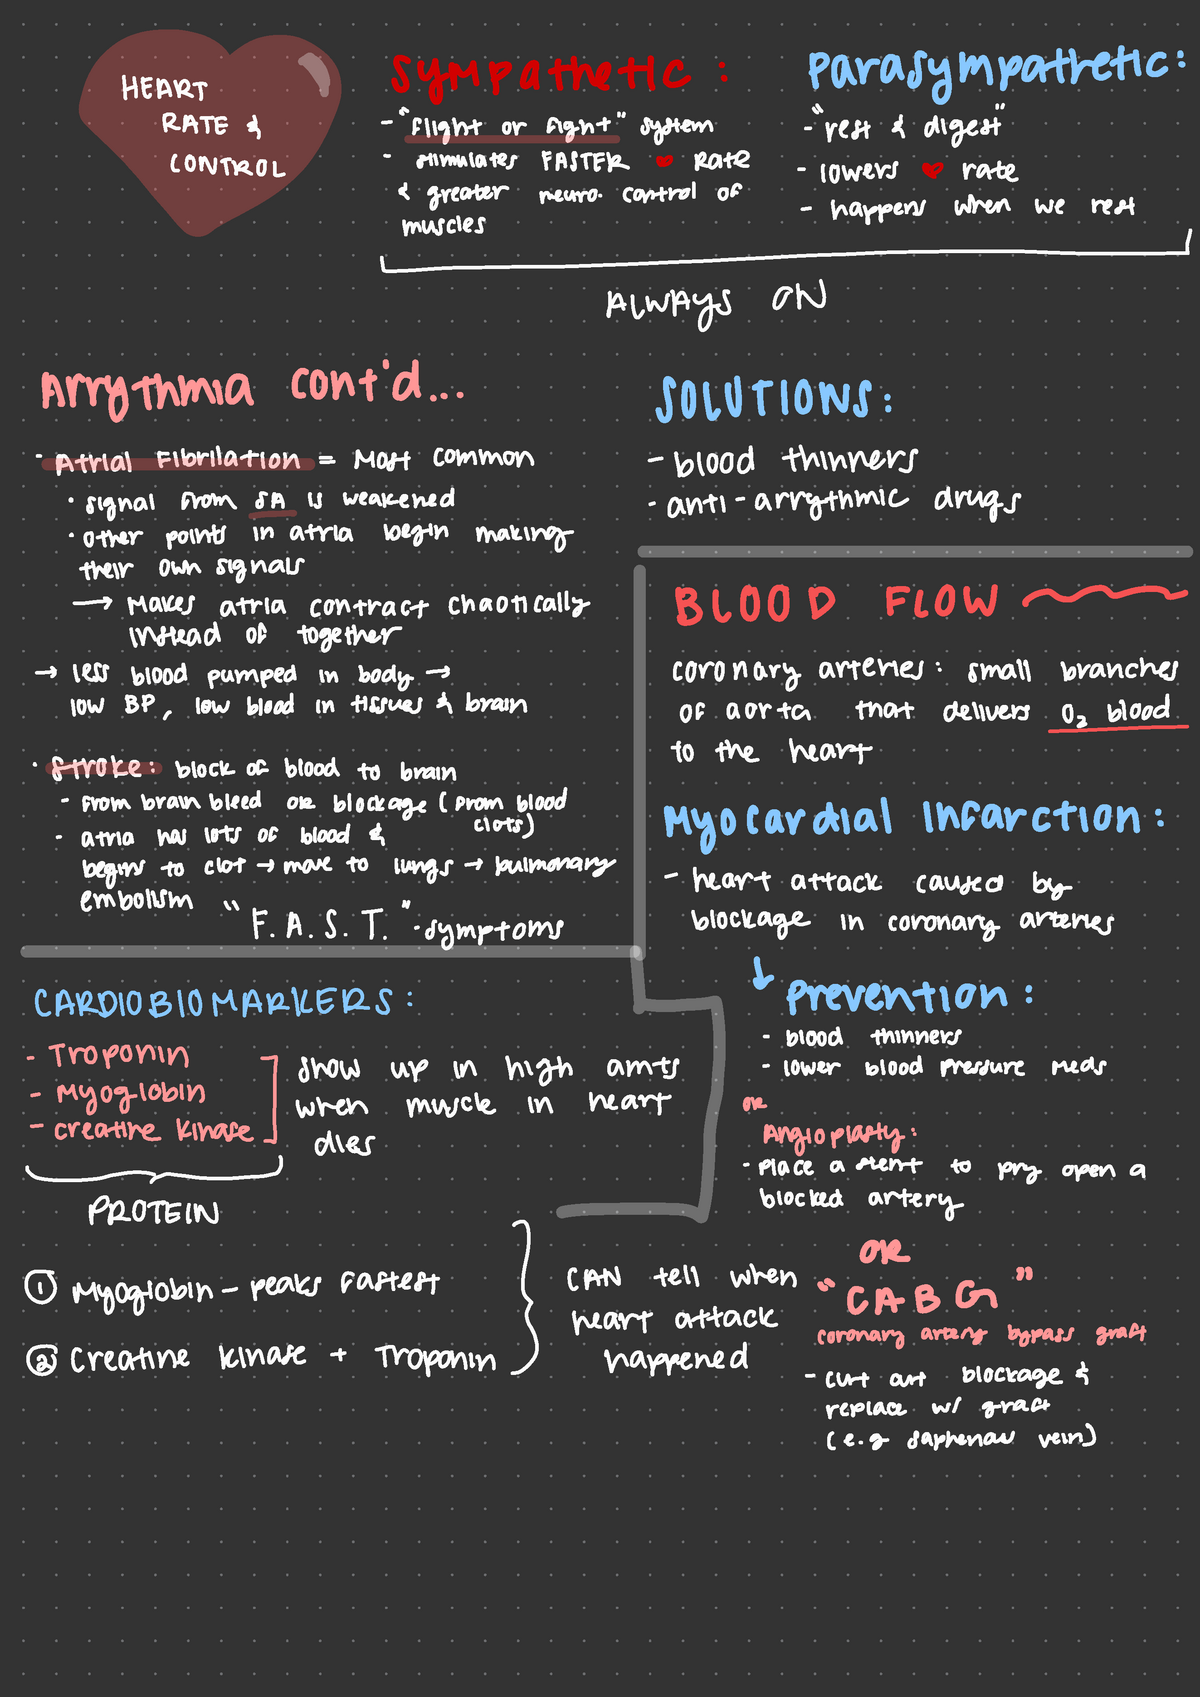 HEART
RATE &
CONTROL
Sympathetic:
- "flight or fight" system
- stimulates FASTER ♥ Rate
& greater neuro. control of
muscles
Parasympathetic:
- "rest & digest"
- lowers ♥ rate
- happens when we rest
ALWAYS ON
Arrythmia cont'd...
- Atrial Fibrilation = Most common
• signal from SA is weakened
• other points in atria begin making
their own signals
→ Makes atria contract chaotically
instead of together
→ less blood pumped in body →
low BP, low blood in tissues & brain
• Stroke: block of blood to brain
- from brain bleed or blockage (from blood
clots)
- atria has lots of blood &
begins to clot → move to lungs → pulmonary
embolism
"F.A.S.T." - symptoms
SOLUTIONS:
- blood thinners
- anti-arrythmic drugs
BLOOD FLOW
coronary arteries: small branches
of aorta that delivers O₂ blood
to the heart
Myocardial Infarction:
- heart attack caused by
blockage in coronary arteries
↓ Prevention:
- blood thinners
- lower blood pressure meds
OR
Angioplasty:
- Place a stent to pry open a
blocked artery
OR
"CABG"
coronary artery bypass graft
- cut out blockage &
replace w/ graft
(e.g saphenous vein)
CARDIOBIOMARKERS:
- Troponin
- Myoglobin
- creatine kinase
show up in high amts
when muscle in heart
dies
PROTEIN
① Myoglobin - peaks fastest
② Creatine kinase + Troponin
CAN tell when
heart attack
happened